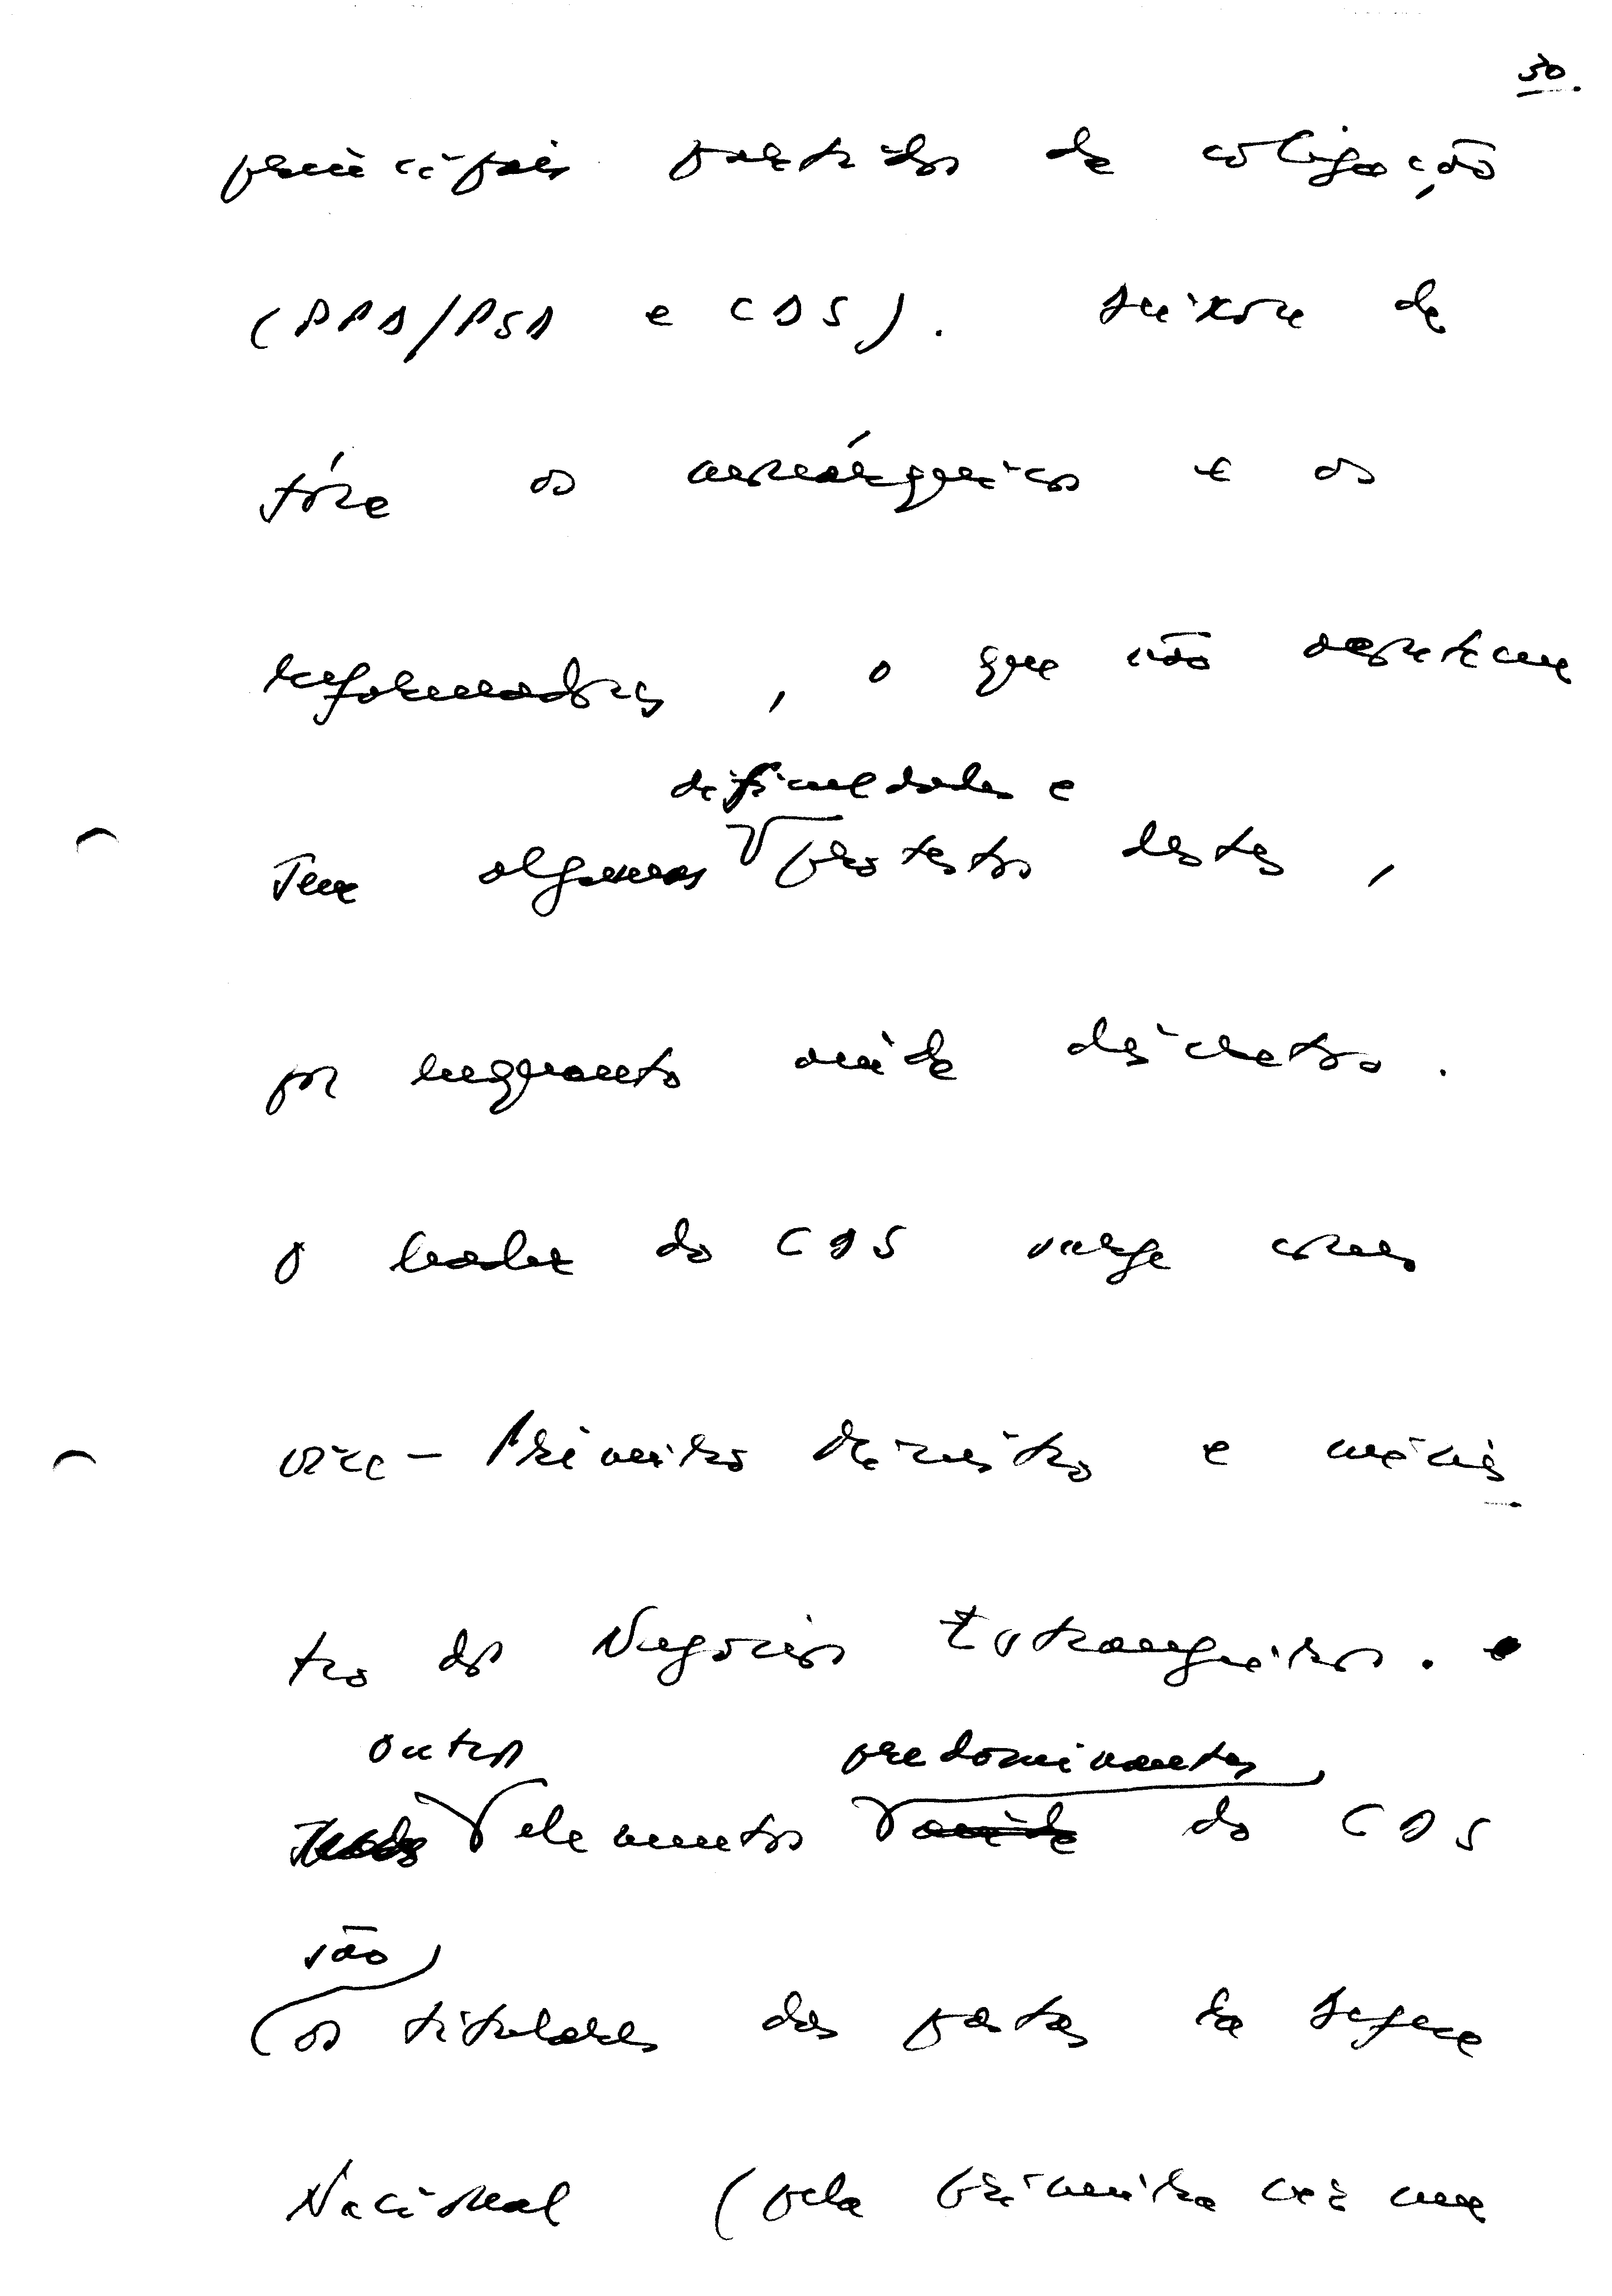 30.
principais partidos da coligação
(PPD/PSD e CDS). Deixou de
fora os monárquicos e os
reformadores, o que não
dificuldades e
sem algumas protestos destes,
por enquanto ainda discretos.
O leader do CDS surge como
vice-Primeiro Ministro e minis-
tro dos Negócios Estrangeiros.
outros predominantes
elementos do CDS
são
os titulares das pastas da Defesa
Nacional (pela primeira vez um